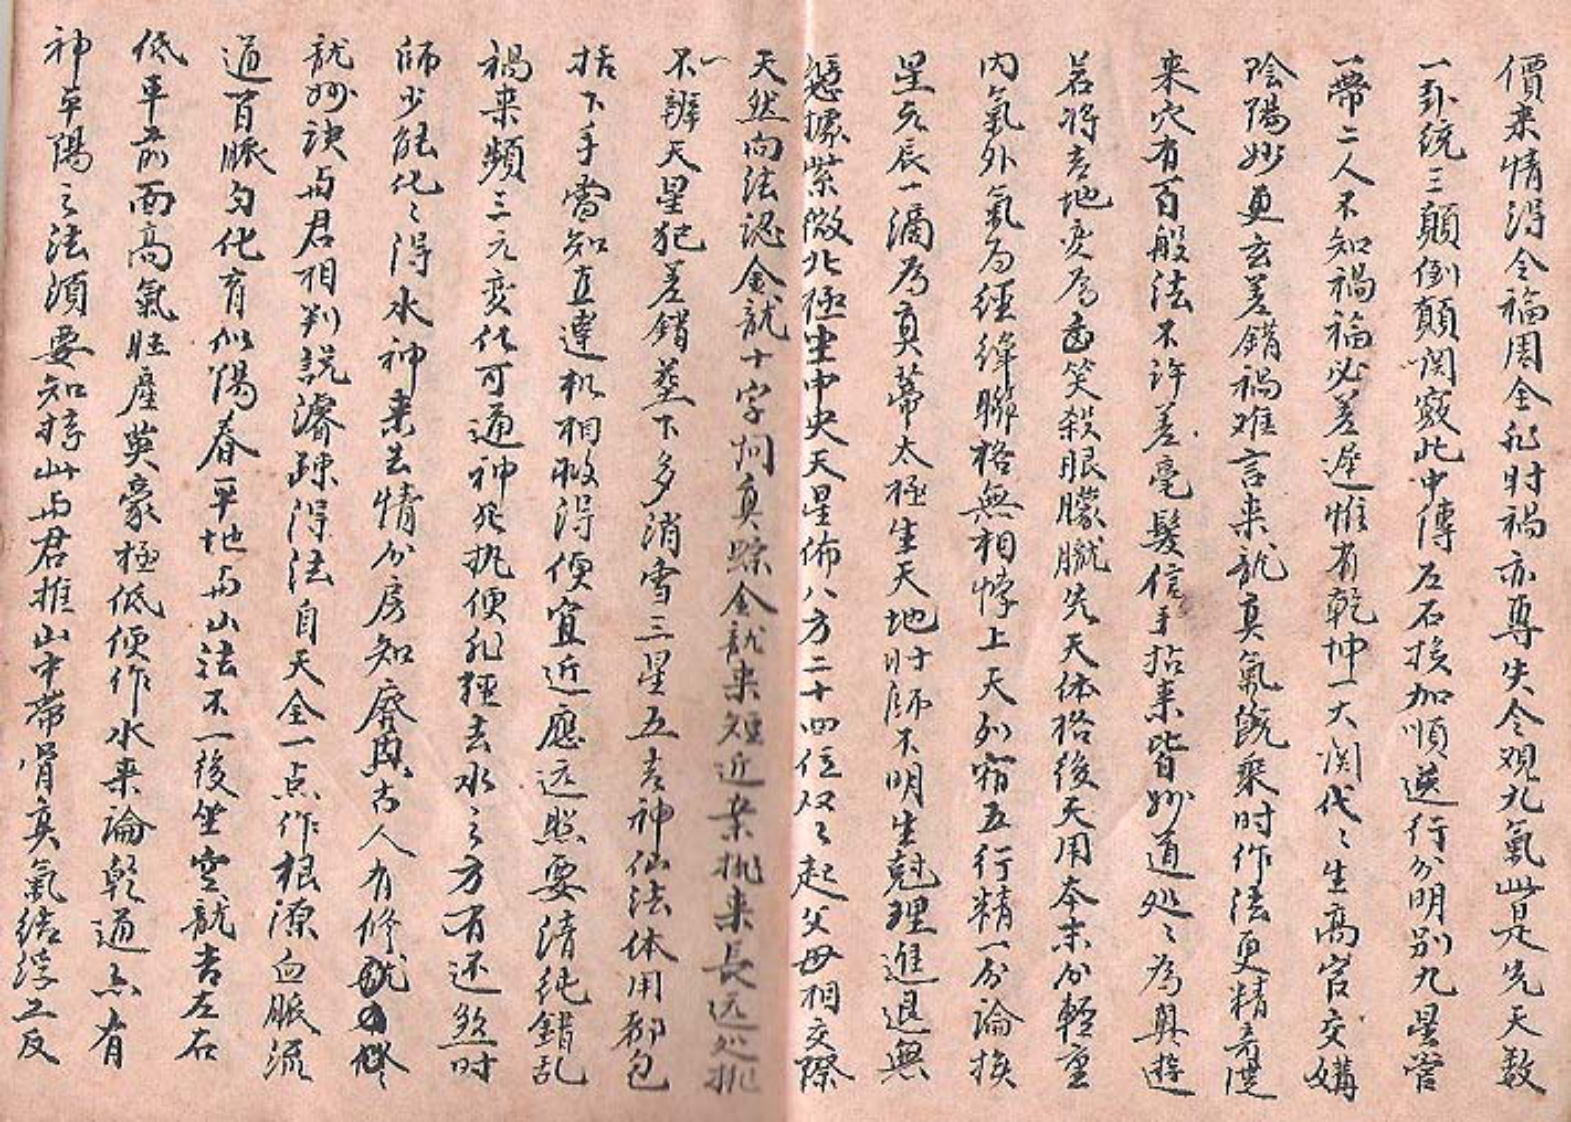 價来情得令福周全犯时禍亦尊失令观九氣此是先天数
一卦统三顛倒顛関竅此中傳左右挨加順逆行分明别九星管
一帶二人不知禍福必差遅惟有乾坤一大関代〻生高官交媾
陰陽妙更玄差錯禍难言来龙真氣既乘时作法更精奇
来穴有百般法不许差毫髮信手拈来皆妙道处〻為真遊
若将吉地变为凶笑殺眼朦朧先天体格後天用本末分輕重
内氣外氣为經緯聯格無相悖上天列宿五行精一分論挨
星元辰一滴为真蒂太極生天地时師不明生尅理進退無
憑據紫微北極坐中央天星佈八方二十四位双〻起父母相交際
天然向法認金龙十字向真踪金龙来短近来挑来長远处挑
不辨天星犯差錯葬下多消雪三星五吉神仙法体用都包
括下手當知直達机相救得便宜近應远照要清純錯乱
禍来頻三元变化可通神犯挑便犯極去水之方有还煞时
師少能化〻得水神来去情分房知廢興古人有修龙
龙妙诀与君相判説濬踈得法自天全一点作根源血脈流
通百脈匀化育似陽春平地与山法不一後坐空龙吉左右
低平前面高氣旺産英豪極低便作水来論乾道点有
神平陽之法須要知将此与君推山中帶骨真氣结淳土反